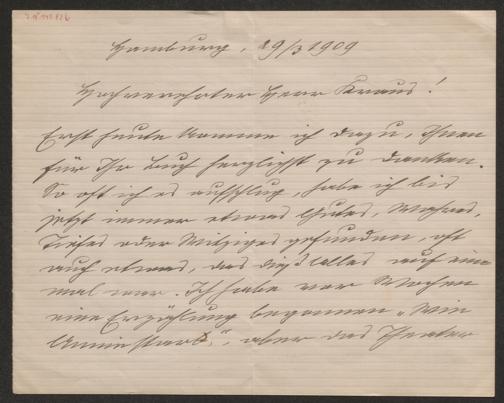 Hamburg, 29/3 1909
Hochverehrter Herr Kraus!
Erst heute komme ich dazu, Ihnen
für Ihr Buch herzlichst zu danken.
So oft ich es aufschlug, habe ich bis
jetzt immer etwas Gutes, Wahres,
Tiefes oder Witziges gefunden, oft
auch etwas, das dies alles auf ein-
mal war. Ich habe vor Wochen
eine Erzählung begonnen „Wie
Annie starb“, aber das Theater